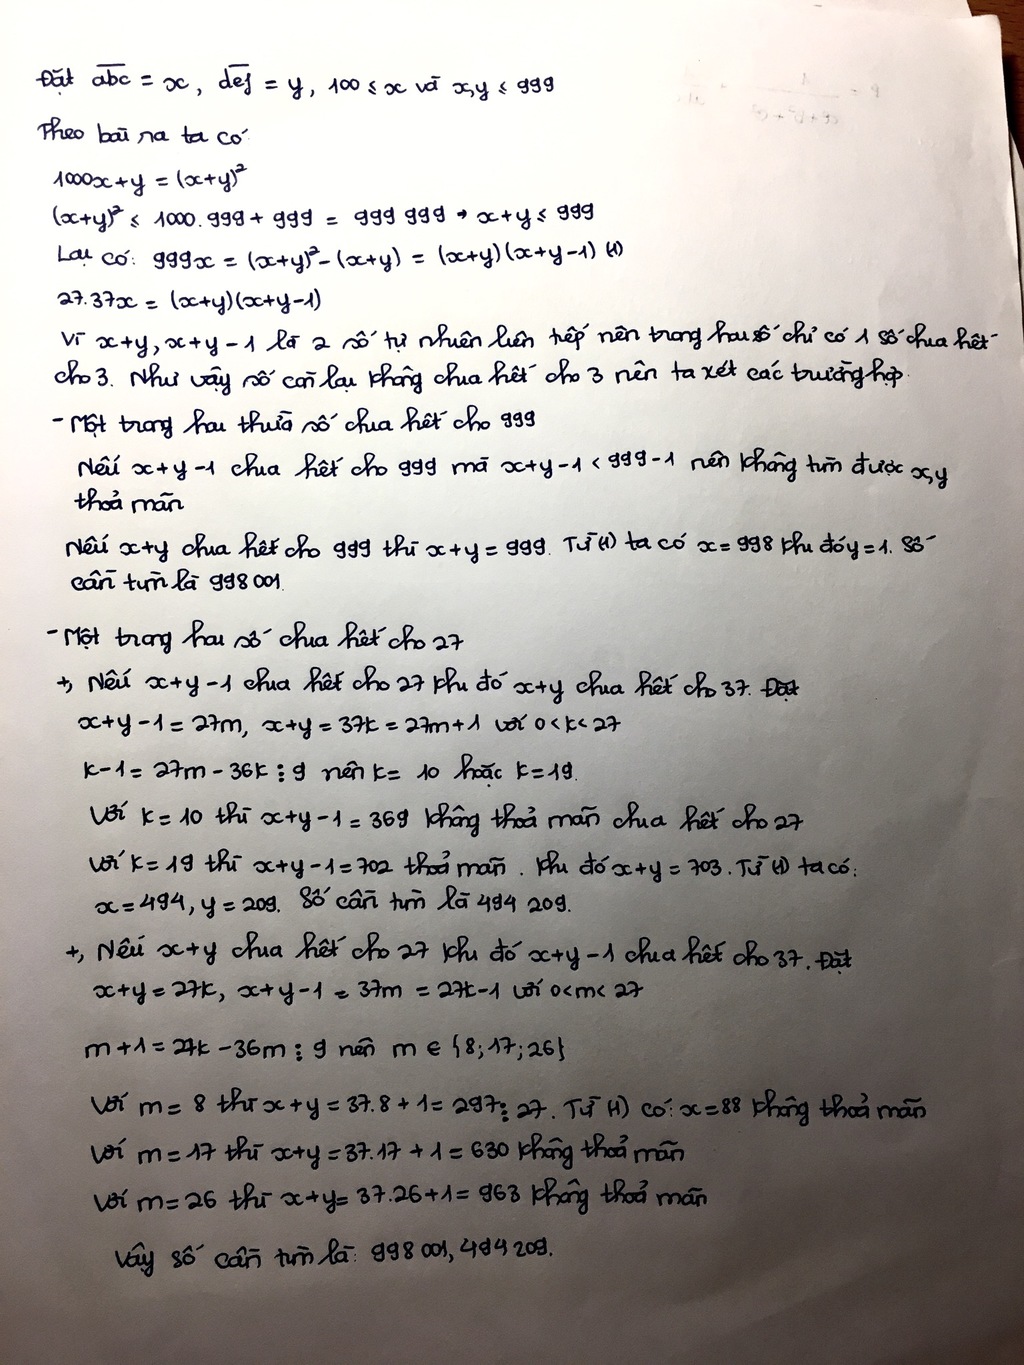 Đặt abc = x, def = y, 100 ≤ x và x,y ≤ 999
Theo bài ra ta có
1000x+y = (x+y)²
(x+y)² ≤ 1000.999 + 999 = 999 999 → x+y ≤ 999
Lại có: 999x = (x+y)²-(x+y) = (x+y)(x+y-1) (1)
27.37x = (x+y)(x+y-1)
Vì x+y, x+y-1 là 2 số tự nhiên liên tiếp nên trong hai số chỉ có 1 số chia hết
cho 3. Như vậy số còn lại không chia hết cho 3 nên ta xét các trường hợp.
- Một trong hai thừa số chia hết cho 999
Nếu x+y-1 chia hết cho 999 mà x+y-1 < 999-1 nên không tìm được x,y
thoả mãn
Nếu x+y chia hết cho 999 thì x+y = 999. Từ (1) ta có x=998 khi đó y=1. Số
cần tìm là 998 001.
- Một trong hai số chia hết cho 27
+, Nếu x+y-1 chia hết cho 27 khi đó x+y chia hết cho 37. Đặt
x+y-1 = 27m, x+y = 37k = 27m+1 với 0<k<27
k-1 = 27m - 36k ⋮ 9 nên k = 10 hoặc k=19.
Với k = 10 thì x+y-1 = 369 không thoả mãn chia hết cho 27
Với k = 19 thì x+y-1 = 702 thoả mãn. Khi đó x+y = 703. Từ (1) ta có:
x = 494, y = 209. Số cần tìm là 494 209.
+, Nếu x+y chia hết cho 27 khi đó x+y-1 chia hết cho 37. Đặt
x+y = 27k, x+y-1 = 37m = 27k-1 với 0<m<27
m+1 = 27k - 36m ⋮ 9 nên m ∈ {8; 17; 26}
Với m = 8 thì x+y = 37.8 + 1 = 297 ⋮ 27. Từ (1) có: x=88 không thoả mãn
Với m = 17 thì x+y = 37.17 + 1 = 630 không thoả mãn
Với m = 26 thì x+y = 37.26+1 = 963 không thoả mãn
Vậy số cần tìm là: 998 001, 494 209.